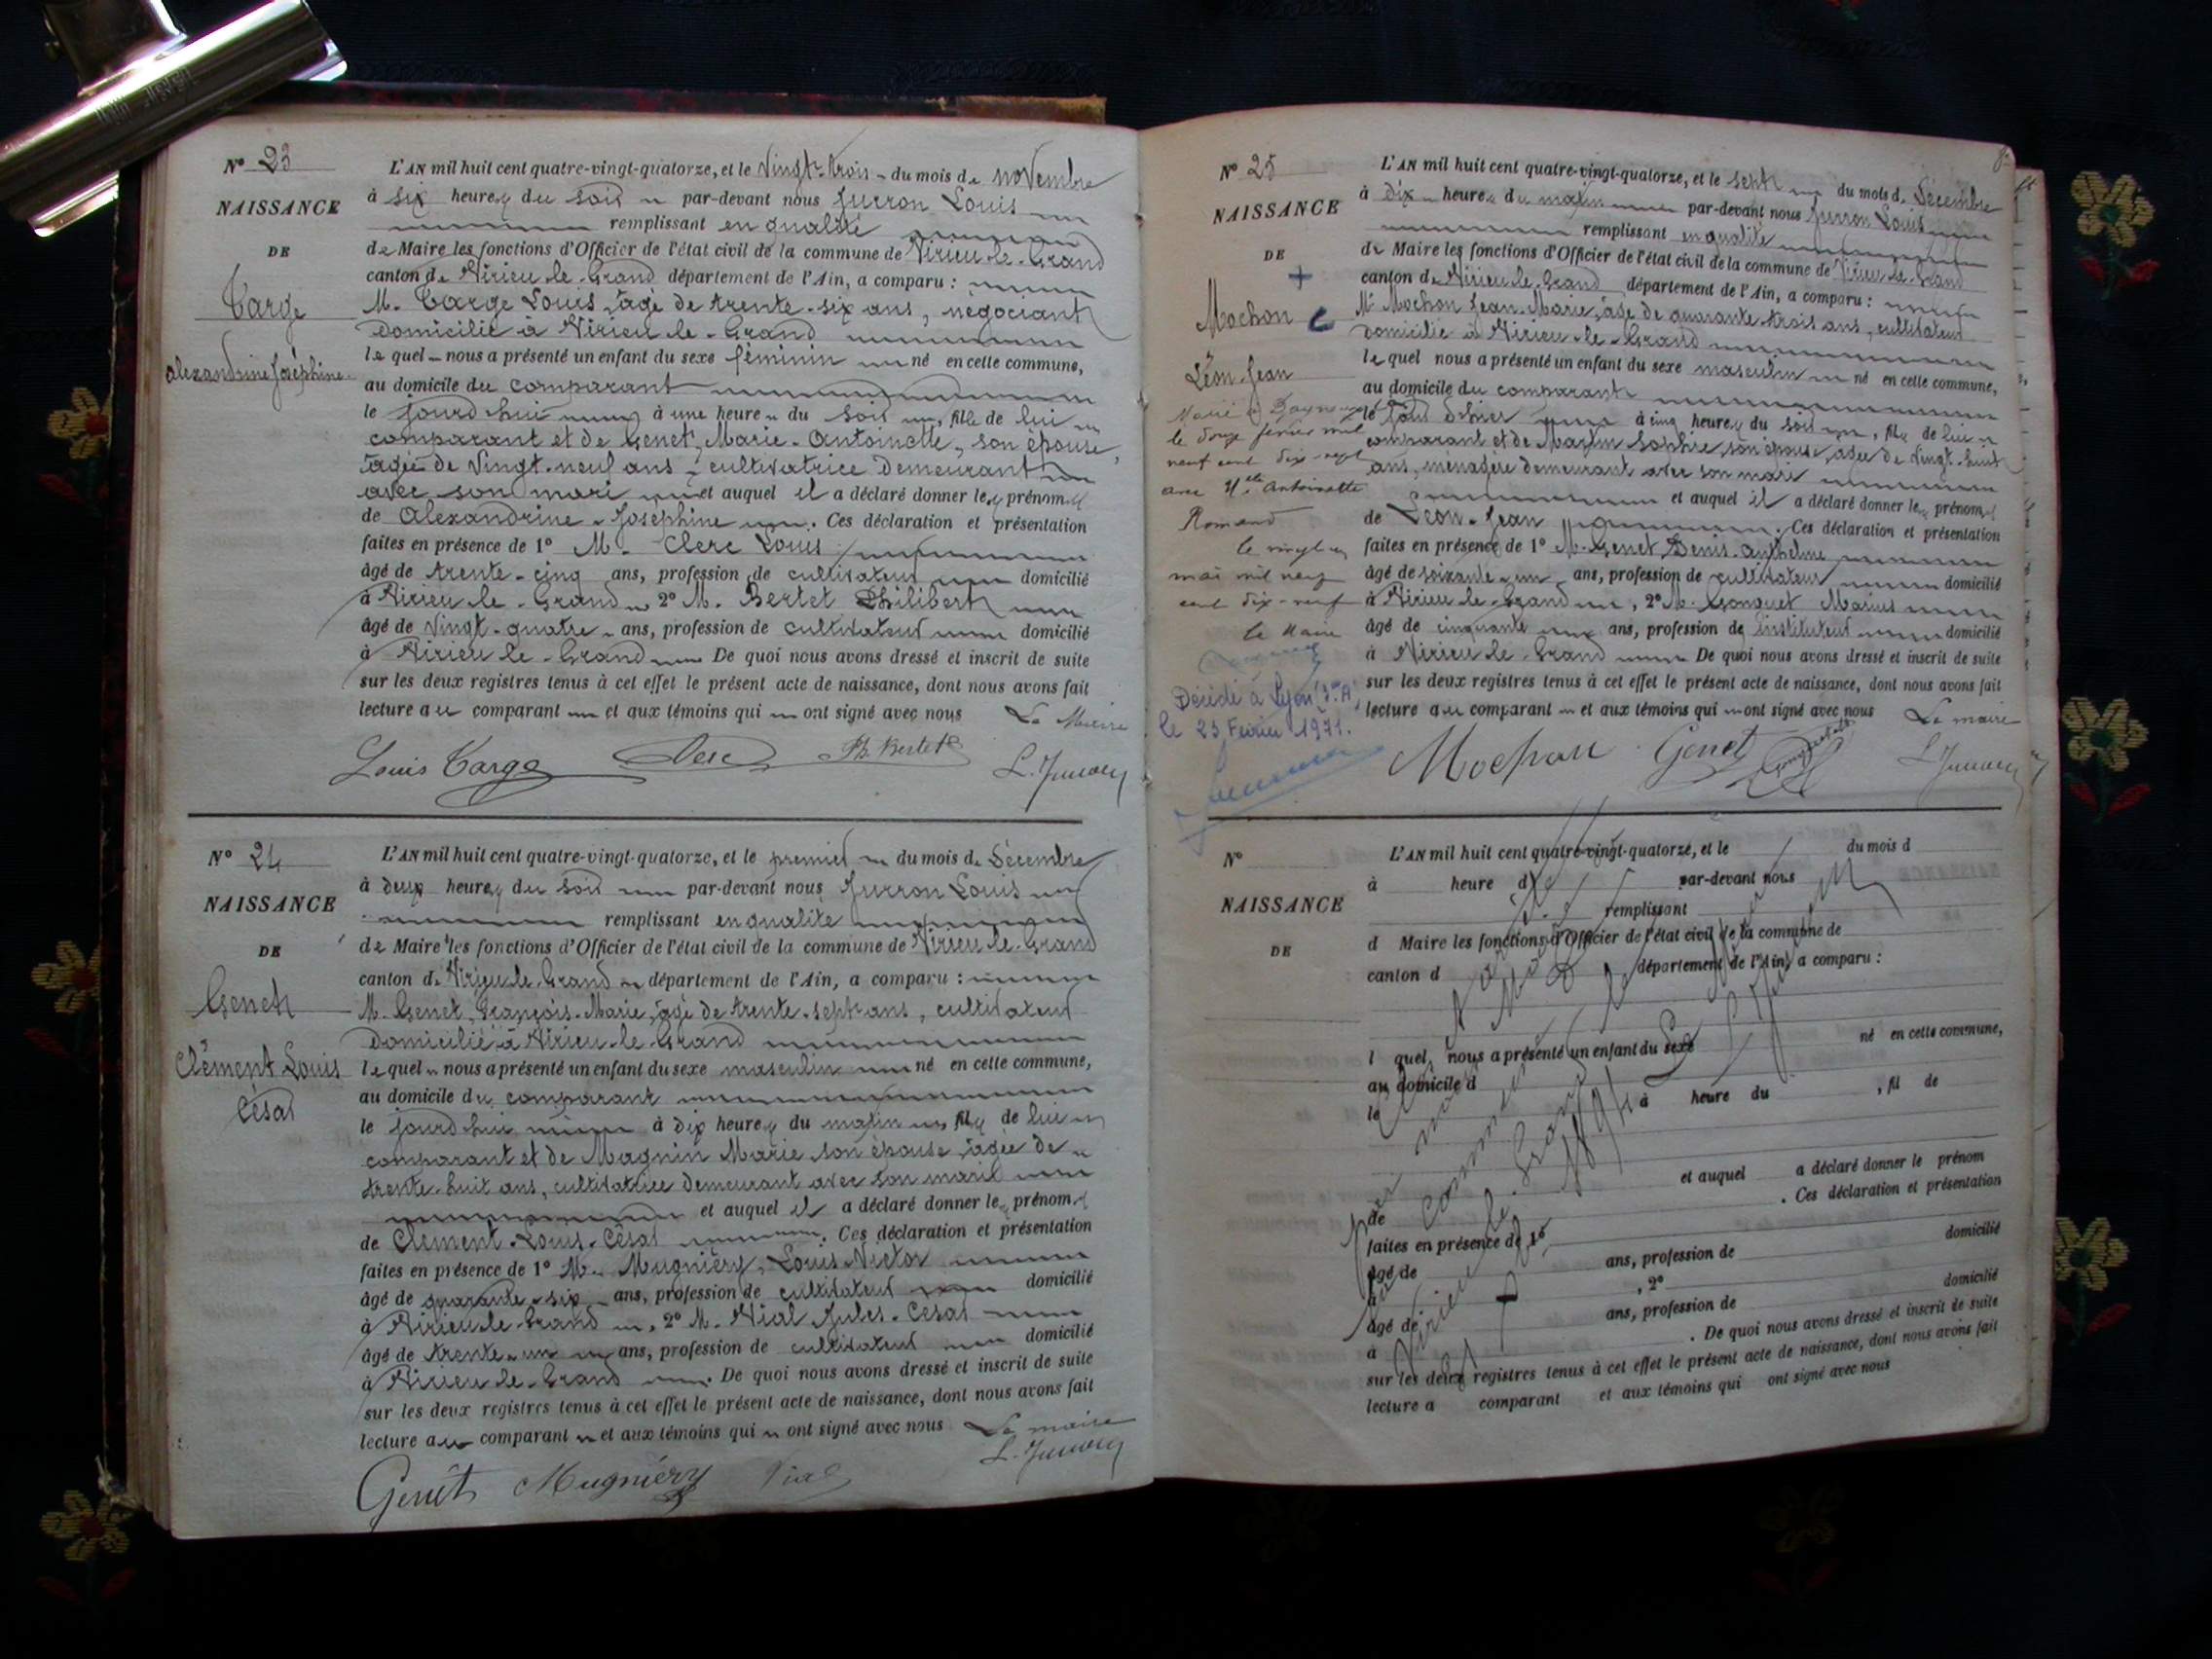 N° 23
NAISSANCE
DE
Targe
Alexandrine Joséphine
L'AN mil huit cent quatre-vingt-quatorze, et le Vingt-trois du mois de novembre
à six heures du soir par-devant nous Jurron Louis
remplissant en qualité
de Maire les fonctions d'Officier de l'état civil de la commune de Virieu-le-Grand
canton de Virieu-le-Grand département de l'Ain, a comparu :
M. Targe Louis, âgé de trente-six ans, négociant
domicilié à Virieu-le-Grand
lequel nous a présenté un enfant du sexe féminin né en cette commune,
au domicile du comparant
le jourd'hui à une heure du soir, fille de lui
comparant et de Genet, Marie-Antoinette, son épouse,
âgée de vingt-neuf ans, cultivatrice demeurant
avec son mari et auquel il a déclaré donner les prénoms
de Alexandrine-Joséphine. Ces déclaration et présentation
faites en présence de 1° M. Clerc Louis
âgé de trente-cinq ans, profession de cultivateur domicilié
à Virieu-le-Grand 2° M. Bertet Philibert
âgé de vingt-quatre ans, profession de cultivateur domicilié
à Virieu-le-Grand De quoi nous avons dressé et inscrit de suite
sur les deux registres tenus à cet effet le présent acte de naissance, dont nous avons fait
lecture au comparant et aux témoins qui ont signé avec nous Le Maire
Louis Targe Clerc Ph. Bertet L. Jurron
N° 24
NAISSANCE
DE
Genet
Clément Louis
César
L'AN mil huit cent quatre-vingt-quatorze, et le premier du mois de Décembre
à deux heures du soir par-devant nous Jurron Louis
remplissant en qualité
de Maire les fonctions d'Officier de l'état civil de la commune de Virieu-le-Grand
canton de Virieu-le-Grand département de l'Ain, a comparu :
M. Genet, François-Marie, âgé de trente-sept ans, cultivateur
domicilié à Virieu-le-Grand
lequel nous a présenté un enfant du sexe masculin né en cette commune,
au domicile du comparant
le jourd'hui à dix heures du matin, fils de lui
comparant et de Magnin Marie son épouse, âgée de
trente-huit ans, cultivatrice demeurant avec son mari
et auquel il a déclaré donner les prénoms
de Clément-Louis-César. Ces déclaration et présentation
faites en présence de 1° M. Mugniéry, Louis-Victor
âgé de quarante-six ans, profession de cultivateur domicilié
à Virieu-le-Grand, 2° M. Vial Jules-César
âgé de trente-un ans, profession de cultivateur domicilié
à Virieu-le-Grand. De quoi nous avons dressé et inscrit de suite
sur les deux registres tenus à cet effet le présent acte de naissance, dont nous avons fait
lecture au comparant et aux témoins qui ont signé avec nous Le maire
Genet Mugniéry Vial L. Jurron
N° 25
NAISSANCE
DE
Mochon
Léon-Jean
Marié à
le douze février mil
neuf cent dix-sept
avec Mlle Antoinette
Romand
le vingt
mai mil neuf
cent dix-neuf
le Maire
Décédé à Lyon
le 23 Février 1971.
L'AN mil huit cent quatre-vingt-quatorze, et le sept du mois de Décembre
à dix heures du matin par-devant nous Jurron Louis
remplissant en qualité
de Maire les fonctions d'Officier de l'état civil de la commune de Virieu-le-Grand
canton de Virieu-le-Grand département de l'Ain, a comparu :
M. Mochon Jean-Marie, âgé de quarante-trois ans, cultivateur
domicilié à Virieu-le-Grand
lequel nous a présenté un enfant du sexe masculin né en cette commune,
au domicile du comparant
le jour d'hier à cinq heures du soir, fils de lui
comparant et de Martin Sophie, son épouse, âgée de vingt-huit
ans, ménagère demeurant avec son mari
et auquel il a déclaré donner les prénoms
de Léon-Jean. Ces déclaration et présentation
faites en présence de 1° M. Genet, Denis-Anthelme
âgé de soixante-un ans, profession de cultivateur domicilié
à Virieu-le-Grand, 2° M. Gonguet Marius
âgé de cinquante ans, profession de instituteur domicilié
à Virieu-le-Grand De quoi nous avons dressé et inscrit de suite
sur les deux registres tenus à cet effet le présent acte de naissance, dont nous avons fait
lecture au comparant et aux témoins qui ont signé avec nous Le maire
Mochon Genet L. Jurron
N°
NAISSANCE
DE
L'AN mil huit cent quatre-vingt-quatorze, et le du mois d
à heure d par-devant nous
remplissant
d Maire les fonctions d'Officier de l'état civil de la commune de
canton d département de l'Ain, a comparu :
l quel nous a présenté un enfant du sexe né en cette commune,
au domicile d
le à heure du , fil de
et auquel a déclaré donner le prénom
de . Ces déclaration et présentation
faites en présence de 1°
âgé de ans, profession de domicilié
à , 2°
âgé de ans, profession de domicilié
à . De quoi nous avons dressé et inscrit de suite
sur les deux registres tenus à cet effet le présent acte de naissance, dont nous avons fait
lecture a comparant et aux témoins qui ont signé avec nous